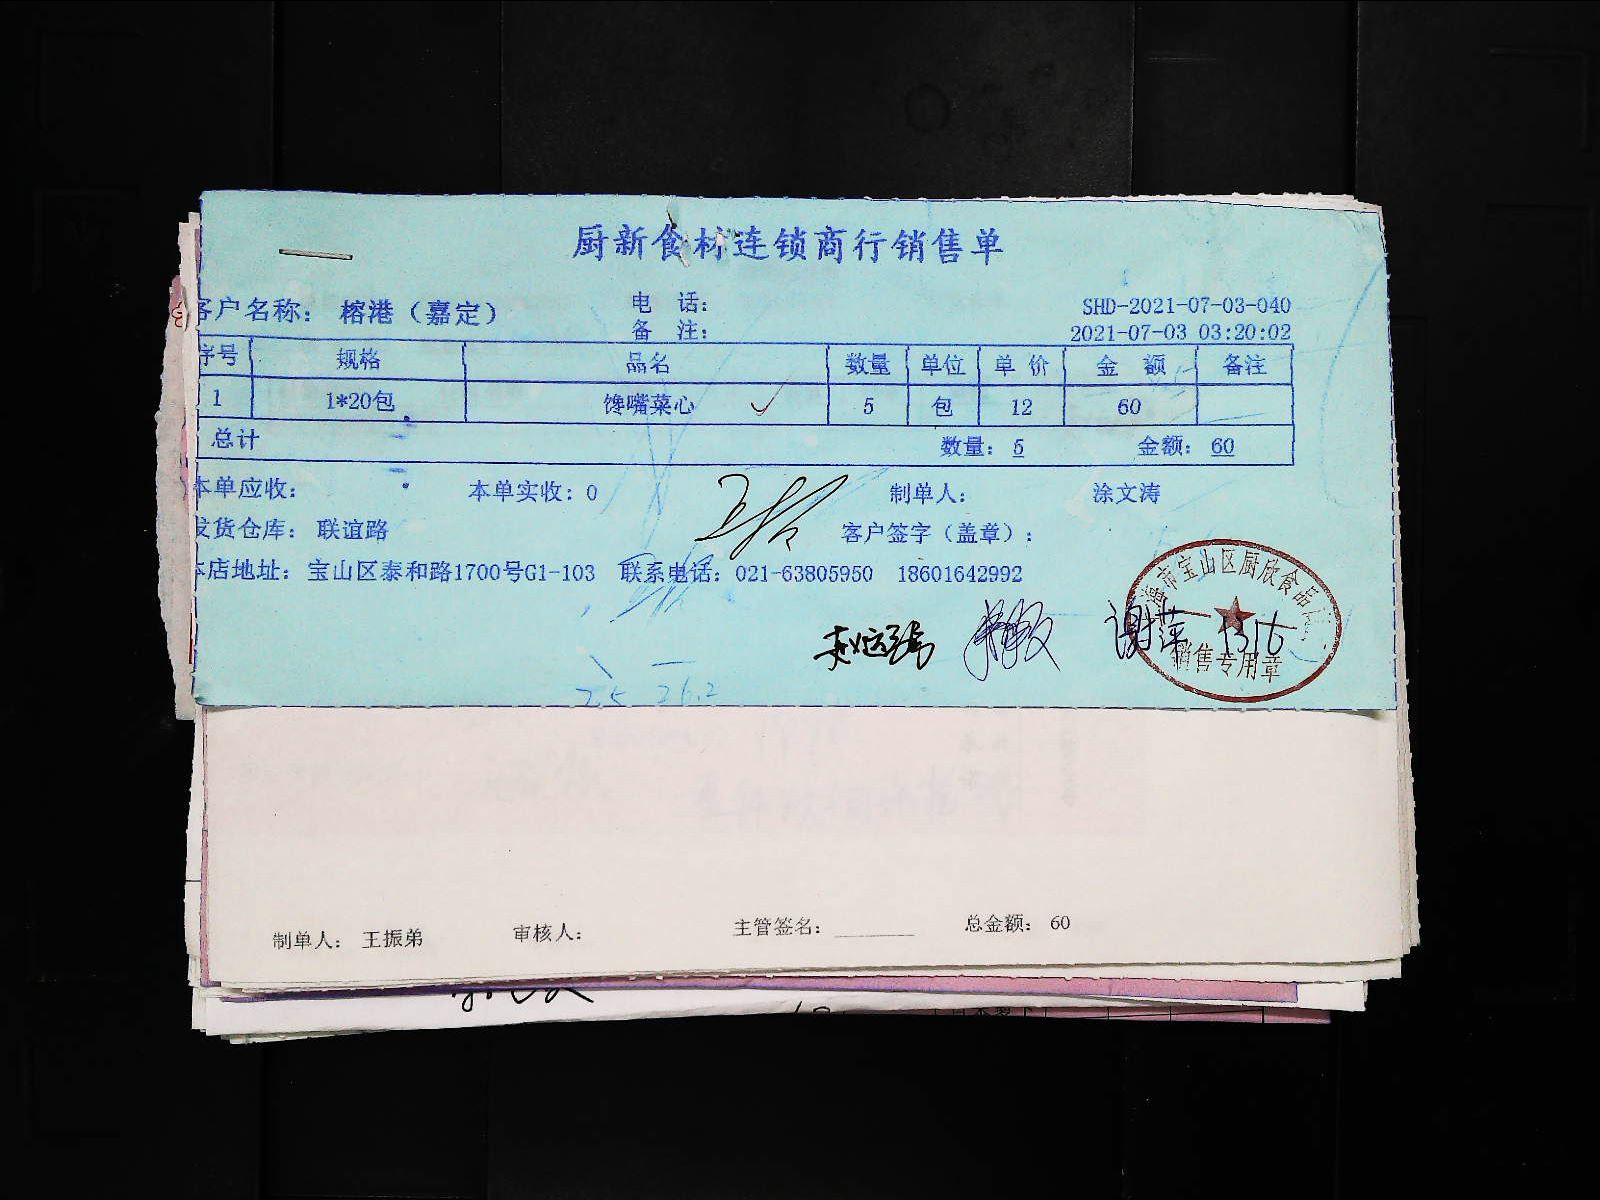 厨新食材连锁商行销售单
客户名称： 榕港（嘉定） 电 话： SHD-2021-07-03-040
备 注： 2021-07-03 03:20:02
序号 规格 品名 数量 单位 单价 金额 备注
1 1*20包 馋嘴菜心 5 包 12 60
总计 数量：5 金额：60
本单应收： 本单实收：0 制单人： 涂文涛
发货仓库： 联谊路 客户签字（盖章）：
本店地址：宝山区泰和路1700号G1-103 联系电话：021-63805950 18601642992
海市宝山区厨欣食品
销售专用章
谢萍
25 26.2
制单人： 王振弟 审核人： 主管签名： 总金额： 60